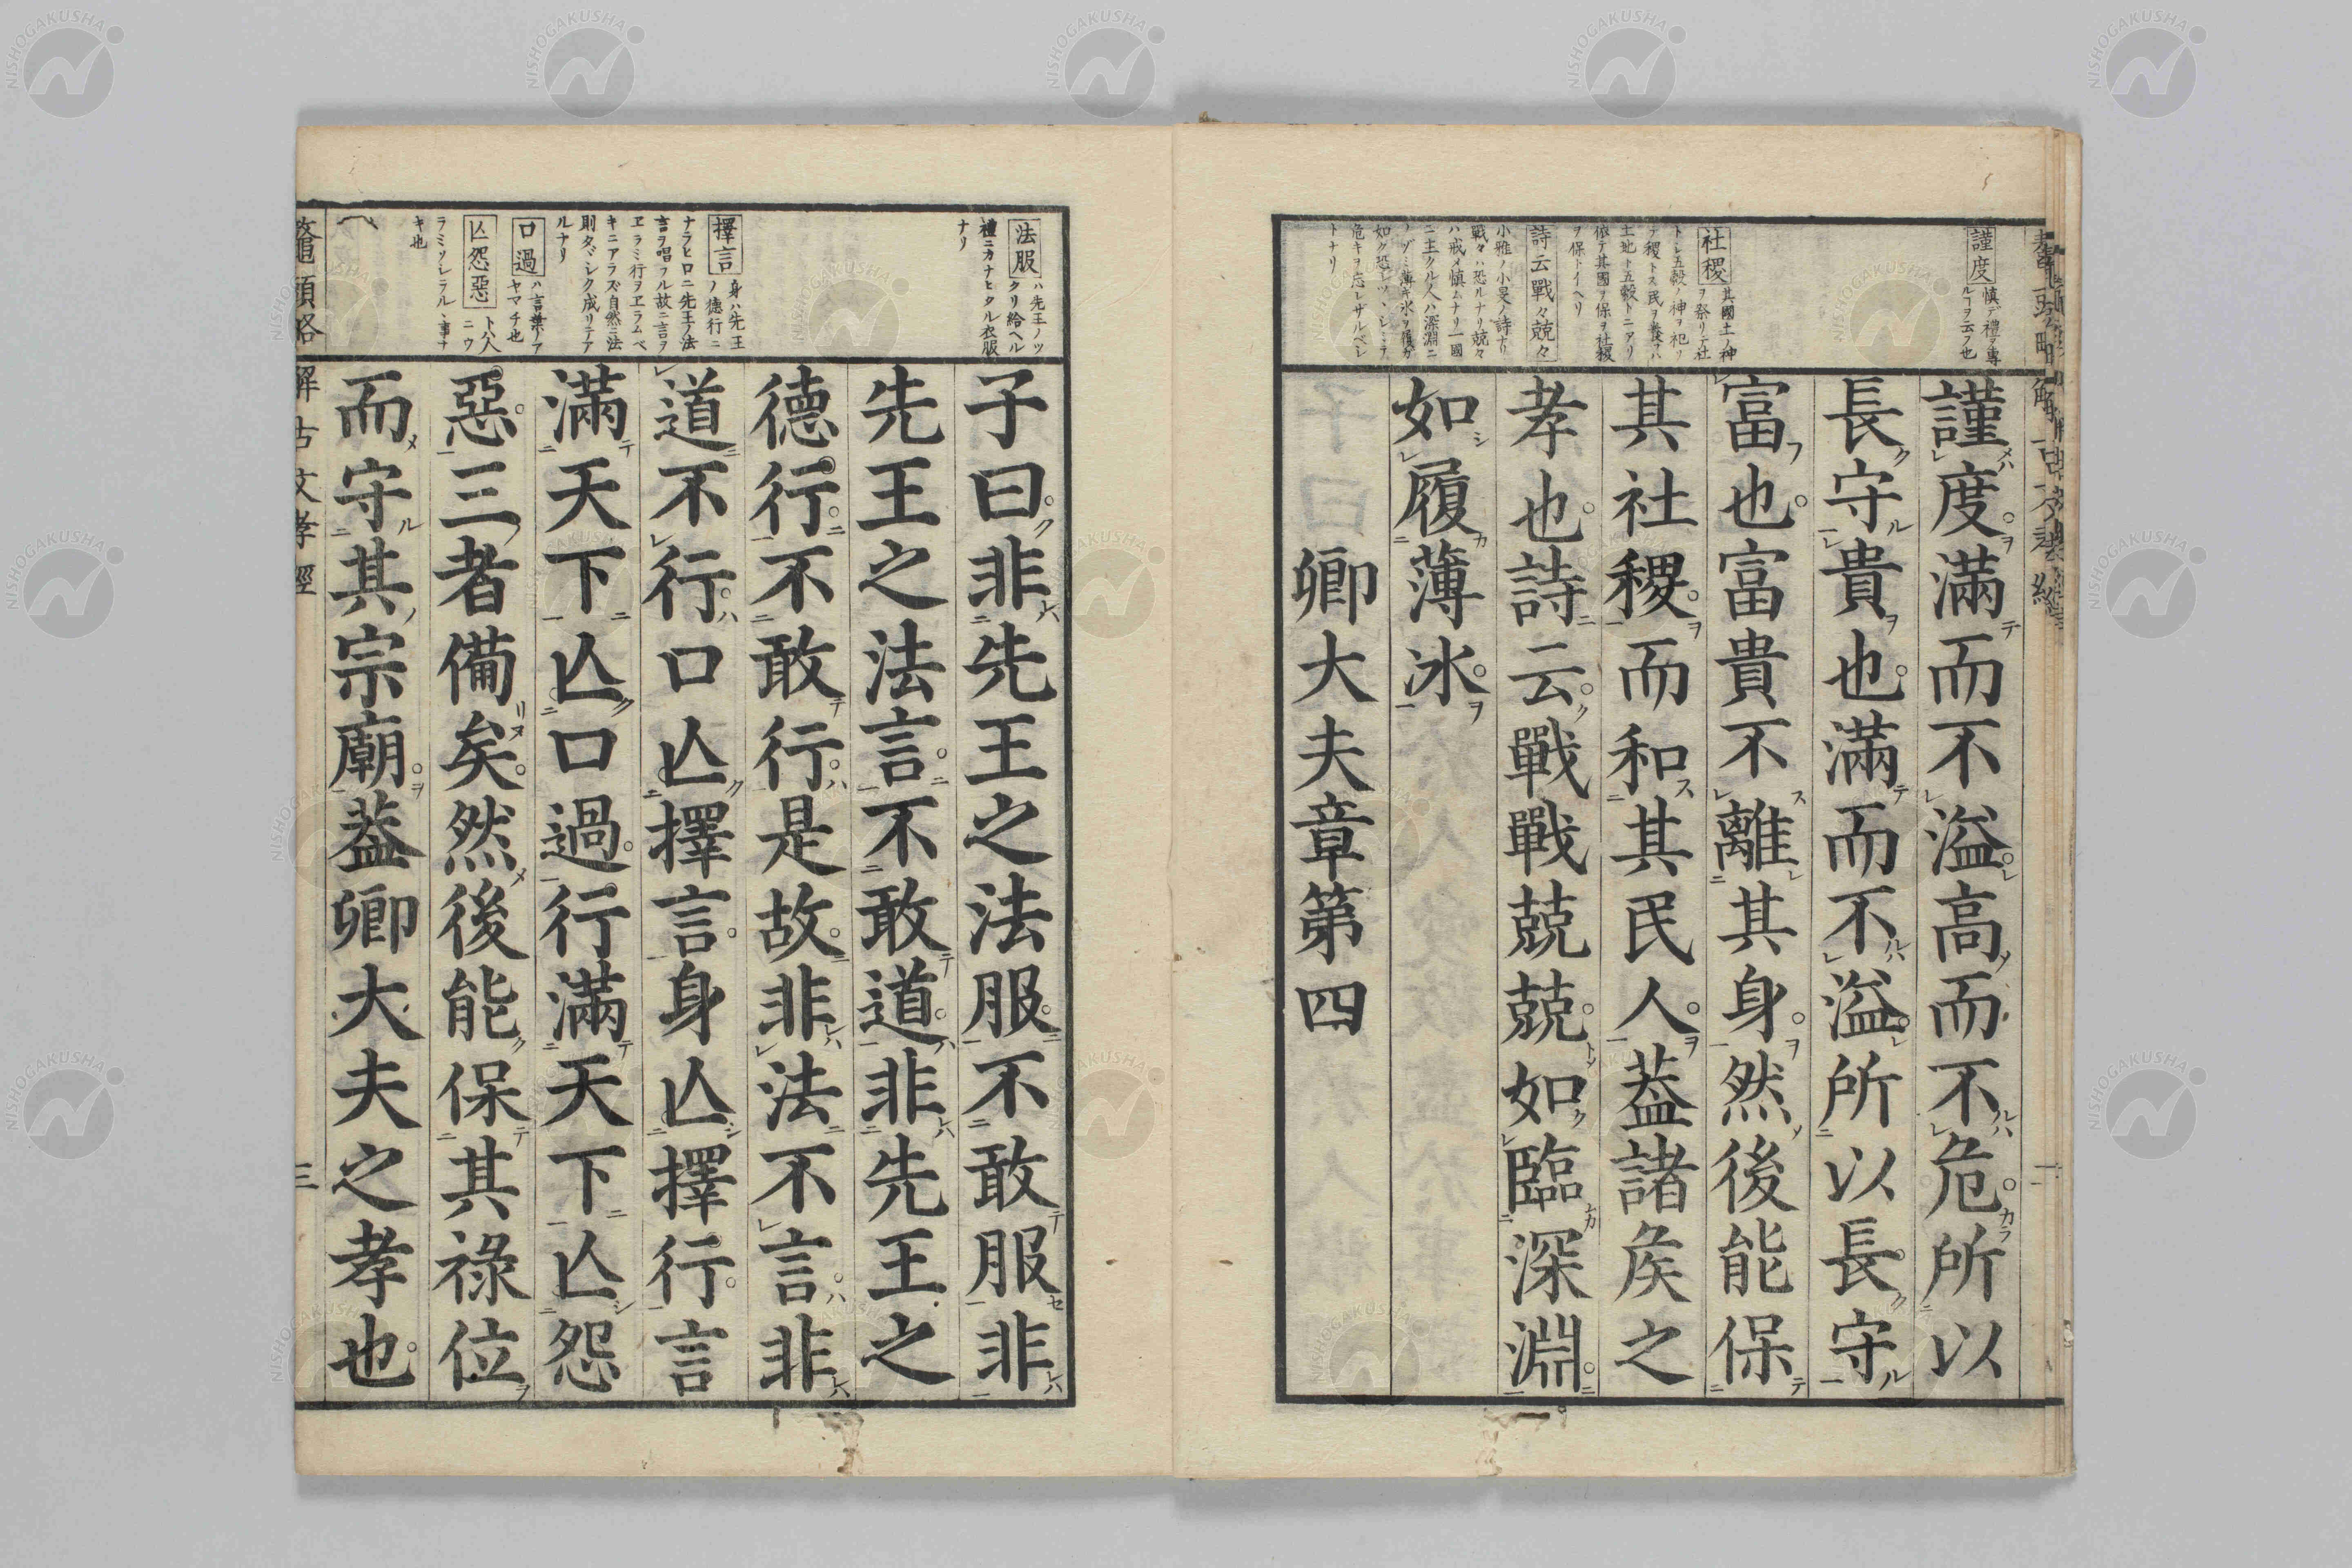 謹度 慎デ禮ヲ專
ルヿヲ云フ也
社稷 其國土ノ神
ヲ祭リテ社
トシ五穀ノ神ヲ祀リ
テ稷トス民ヲ養フハ
土地ト五穀トニアリ
依テ其國ヲ保ヲ社稷
ヲ保トイヘリ
詩云戰々兢々
小雅ノ小旻ノ詩ナリ
戰々ハ恐ルナリ兢々
ハ戒メ慎ムナリ一國
ニ主タル人ハ深淵ニ
ノゾミ薄キ氷ヲ履ガ
如ク恐レツヽシミテ
危キヲ忘レザルベシ
トナリ
謹度滿而不溢高而不危所以
長守貴也滿而不溢所以長守
富也富貴不離其身然後能保
其社稷而和其民人葢諸矦之
孝也詩云戰戰兢兢如臨深淵
如履薄氷
卿大夫章第四
法服 ハ先王ノツ
クリ給ヘル
禮ニカナヒタル衣服
ナリ
擇言 身ハ先王
ノ德行ニ
ナラヒ口ニ先王ノ法
言ヲ唱フル故ニ言ヲ
ヱラミ行ヲヱラムベ
キニアラズ自然ニ法
則タヾシク成リテア
ルナリ
口過 ハ言葉ノア
ヤマチ也
亾怨惡 ト人
ニウ
ラミソシラルヽ事ナ
キ也
子曰非先王之法服不敢服非
先王之法言不敢道非先王之
德行不敢行是故非法不言非
道不行口亾擇言身亾擇行言
滿天下亾口過行滿天下亾怨
惡三者備矣然後能保其祿位
而守其宗廟葢卿大夫之孝也
鼇頭略解古文孝經 三
NISHOGAKUSHA